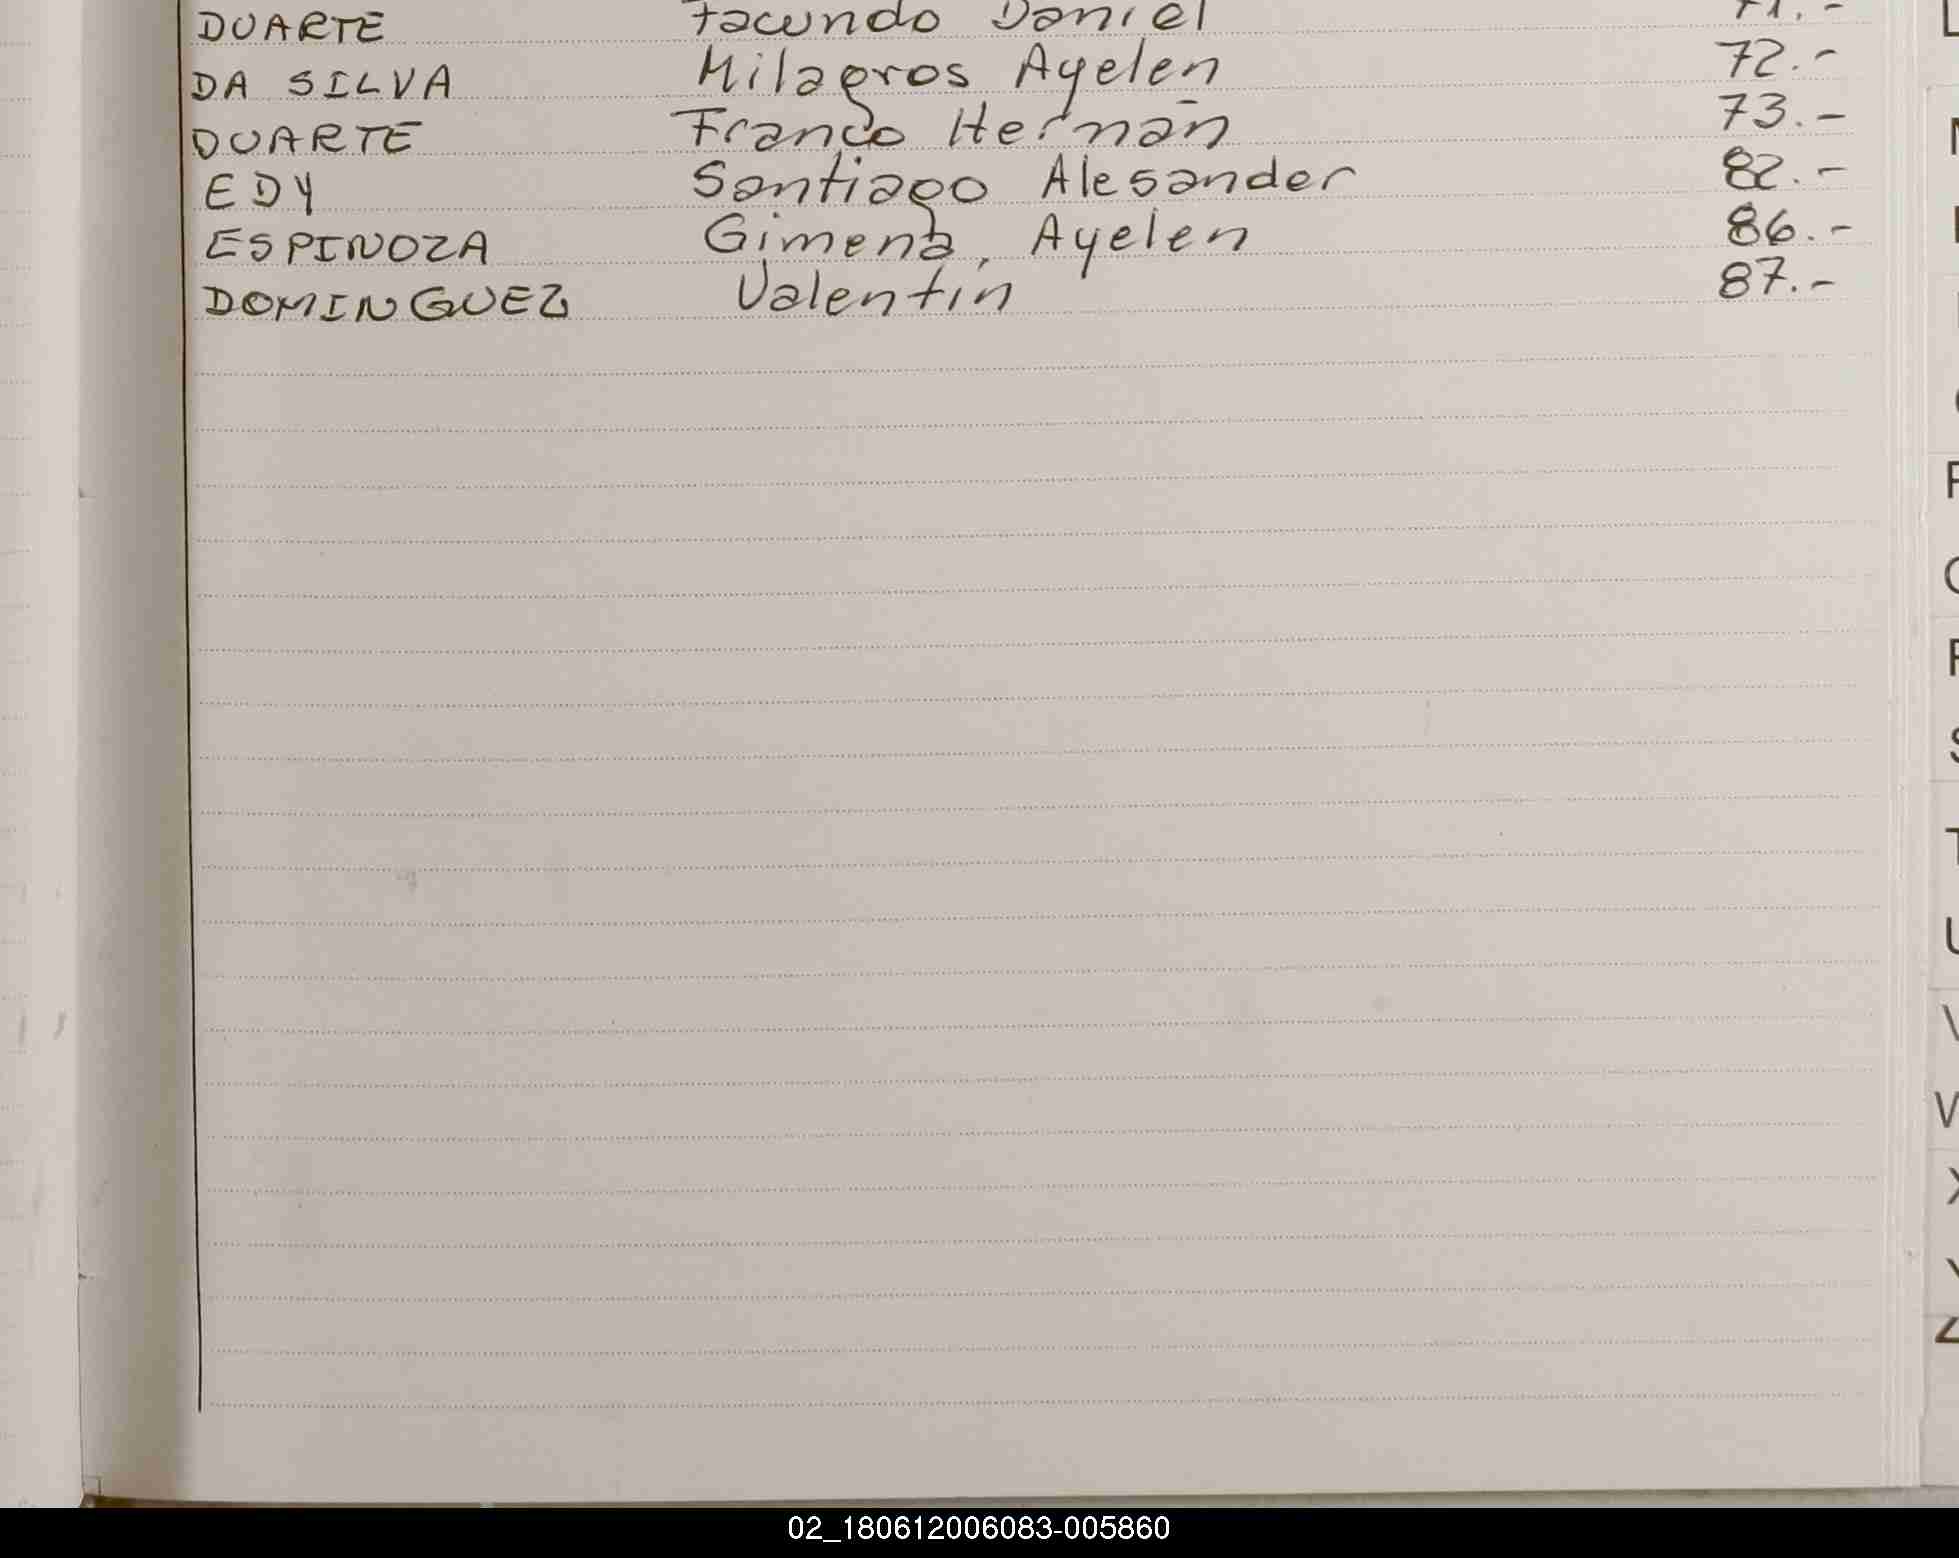 DUARTE Facundo Daniel 71.-
DA SILVA Milagros Ayelen 72.-
DUARTE Franco Hernán 73.-
EDY Santiago Alesander 82.-
ESPINOZA Gimena, Ayelen 86.-
DOMINGUEZ Valentín 87.-
S
T
U
V
W
X
Y
Z
02_180612006083-005860